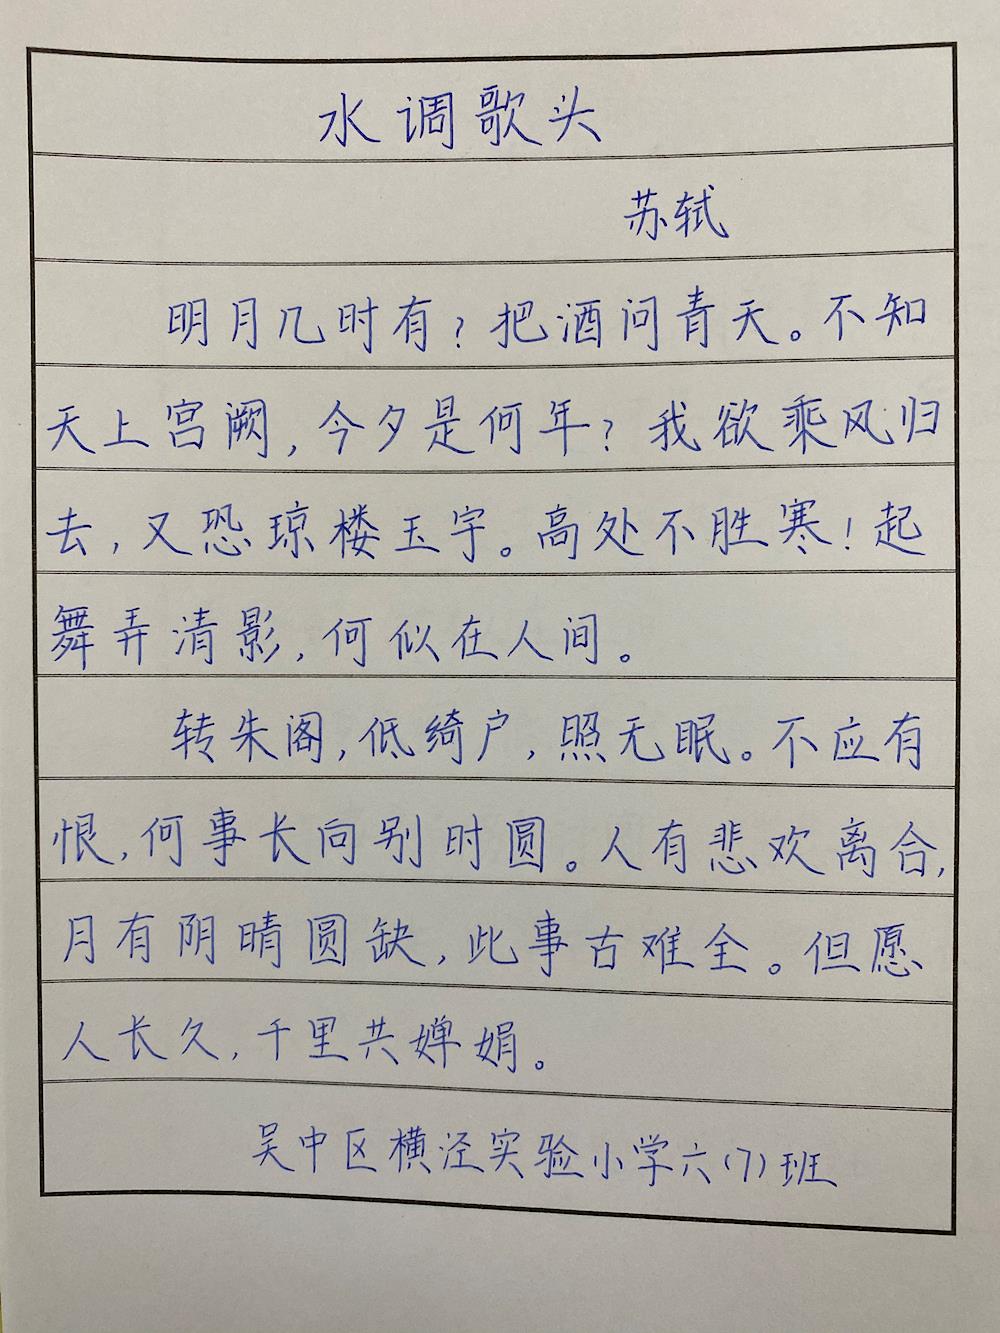 水调歌头
苏轼
明月几时有?把酒问青天。不知
天上宫阙,今夕是何年?我欲乘风归
去,又恐琼楼玉宇。高处不胜寒!起
舞弄清影,何似在人间。
转朱阁,低绮户,照无眠。不应有
恨,何事长向别时圆。人有悲欢离合,
月有阴晴圆缺,此事古难全。但愿
人长久,千里共婵娟。
吴中区横泾实验小学六(7)班